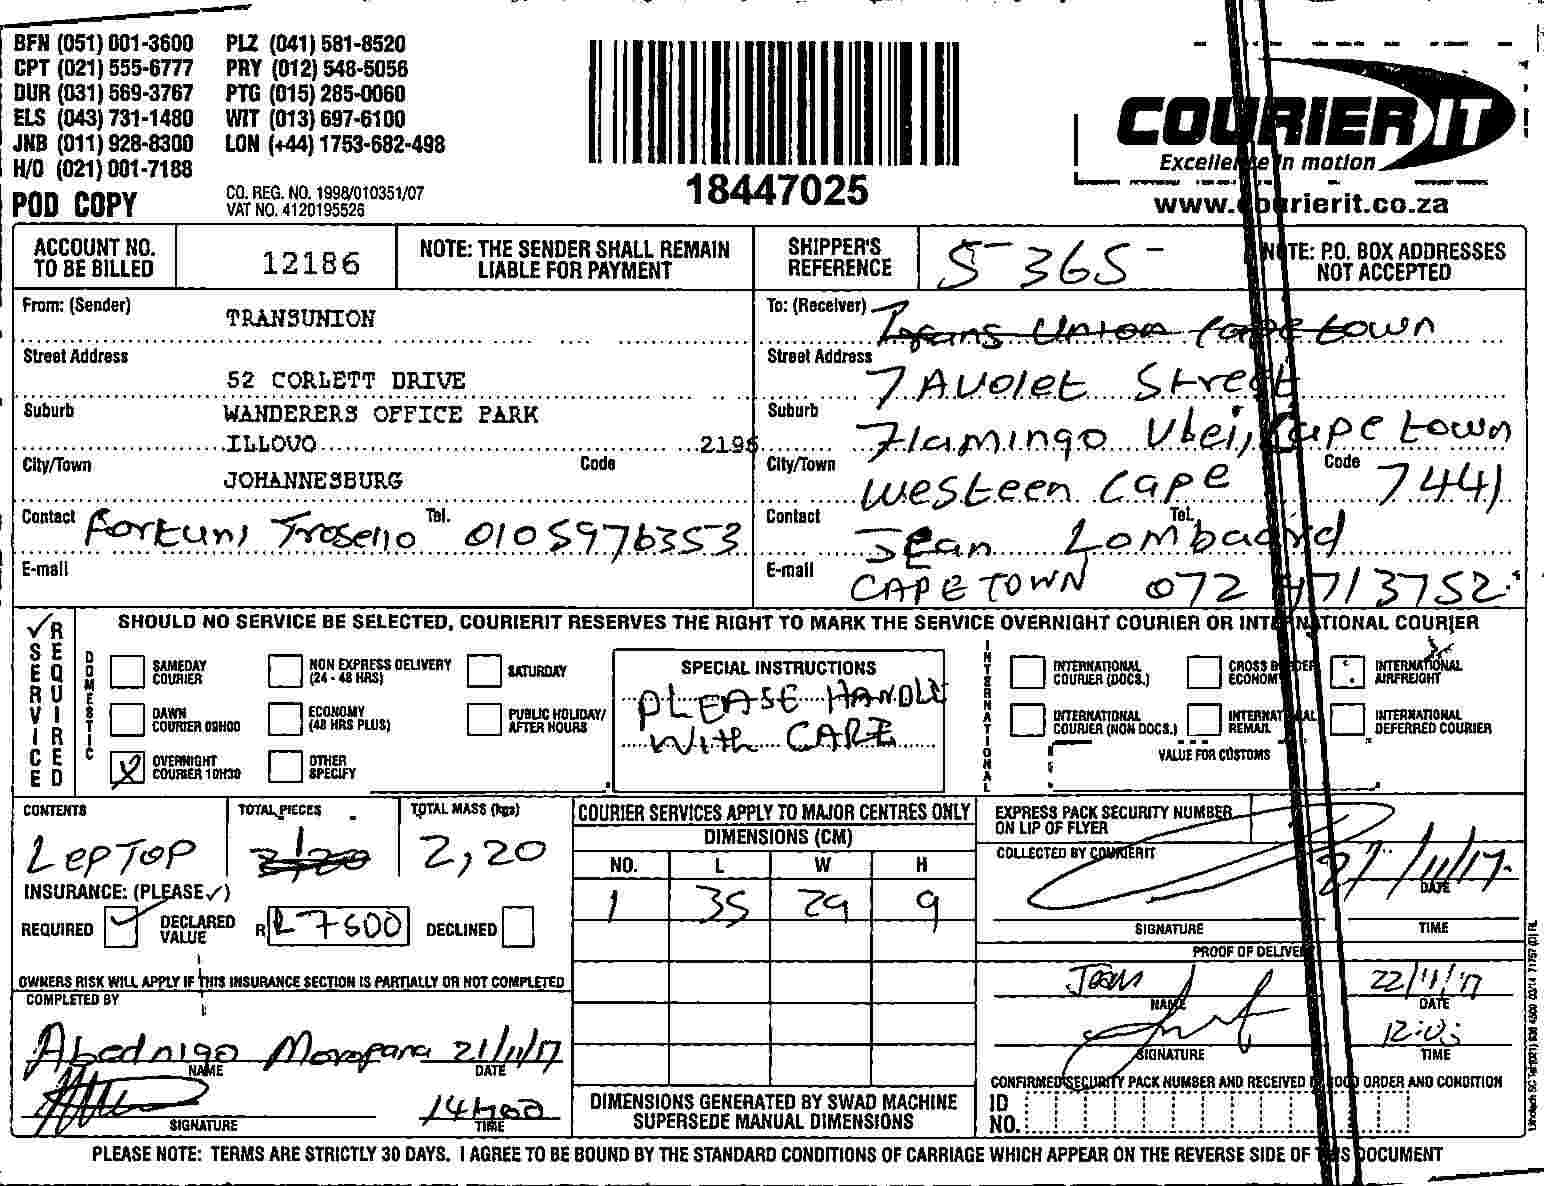 BFN (051) 001-3600 PLZ (041) 581-8520
CPT (021) 555-6777 PRY (012) 548-5056
DUR (031) 569-3767 PTG (015) 285-0060
ELS (043) 731-1480 WIT (013) 697-6100
JNB (011) 928-8300 LON (+44) 1753-682-498
H/O (021) 001-7188
POD COPY
CO. REG. NO. 1998/010351/07
VAT NO. 4120195526
18447025
COURIER IT
Excellence in motion
www.courierit.co.za
ACCOUNT NO. TO BE BILLED 12186
NOTE: THE SENDER SHALL REMAIN LIABLE FOR PAYMENT
SHIPPER'S REFERENCE S 365
NOTE: P.O. BOX ADDRESSES NOT ACCEPTED
From: (Sender) TRANSUNION
Street Address 52 CORLETT DRIVE
Suburb WANDERERS OFFICE PARK
ILLOVO 2196
City/Town JOHANNESBURG Code
Contact Tel. 0105976353
E-mail
To: (Receiver) Trans Union Cape town
Street Address 7 Avolet Street
Suburb Flamingo Vlei, Cape town
City/Town Western Cape Code 7441
Contact Jean Lombaard Tel.
E-mail CAPE TOWN 072 4713752
SERVICE REQUIRED
SHOULD NO SERVICE BE SELECTED, COURIERIT RESERVES THE RIGHT TO MARK THE SERVICE OVERNIGHT COURIER OR INTERNATIONAL COURIER
DOMESTIC
SAMEDAY COURIER
NON EXPRESS DELIVERY (24 - 48 HRS)
SATURDAY
DAWN COURIER 09H00
ECONOMY (48 HRS PLUS)
PUBLIC HOLIDAY/ AFTER HOURS
OVERNIGHT COURIER 10H30
OTHER SPECIFY
SPECIAL INSTRUCTIONS
PLEASE HANDLE
With CARE
INTERNATIONAL
INTERNATIONAL COURIER (DOCS.)
CROSS BORDER ECONOMY
INTERNATIONAL AIRFREIGHT
INTERNATIONAL COURIER (NON DOCS.)
INTERNATIONAL REMAIL
INTERNATIONAL DEFERRED COURIER
VALUE FOR CUSTOMS
CONTENTS LEPTOP
TOTAL PIECES 1
TOTAL MASS (kgs) 2,20
INSURANCE: (PLEASE ✓)
REQUIRED DECLARED VALUE R R 7500 DECLINED
OWNERS RISK WILL APPLY IF THIS INSURANCE SECTION IS PARTIALLY OR NOT COMPLETED
COMPLETED BY
Abednigo 21/11/17
NAME DATE
14h00
SIGNATURE TIME
COURIER SERVICES APPLY TO MAJOR CENTRES ONLY
DIMENSIONS (CM)
NO. L W H
1 35 29 9
DIMENSIONS GENERATED BY SWAD MACHINE
SUPERSEDE MANUAL DIMENSIONS
EXPRESS PACK SECURITY NUMBER
ON LIP OF FLYER
COLLECTED BY COURIERIT
21/11/17
DATE
SIGNATURE TIME
PROOF OF DELIVERY
Jean 22/11/17
NAME DATE
12:03
SIGNATURE TIME
CONFIRMED SECURITY PACK NUMBER AND RECEIVED IN GOOD ORDER AND CONDITION
ID NO.
PLEASE NOTE: TERMS ARE STRICTLY 30 DAYS. I AGREE TO BE BOUND BY THE STANDARD CONDITIONS OF CARRIAGE WHICH APPEAR ON THE REVERSE SIDE OF THIS DOCUMENT